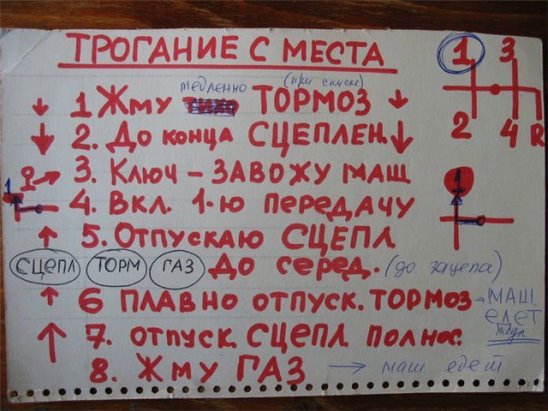 ТРОГАНИЕ С МЕСТА
1 3
медленно (при спуске)
1 Жму тихо ТОРМОЗ
2. До конца СЦЕПЛЕН.
2 4 R
3. Ключ – ЗАВОЖУ МАШ
1
1
4. Вкл. 1-ю передачу
5. Отпускаю СЦЕПЛ
СЦЕПЛ ТОРМ ГАЗ До серед. (до зацепа)
6 ПЛАВНО отпуск. ТОРМОЗ – МАШ.
ЕДЕТ
7. отпуск. СЦЕПЛ полнос.
8. Жму ГАЗ → маш едет